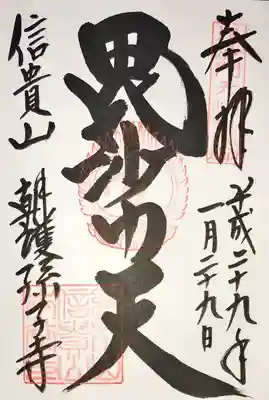 奉拝
平成二十九年
一月二十九日
毘沙门天
信貴山
朝護孫子寺